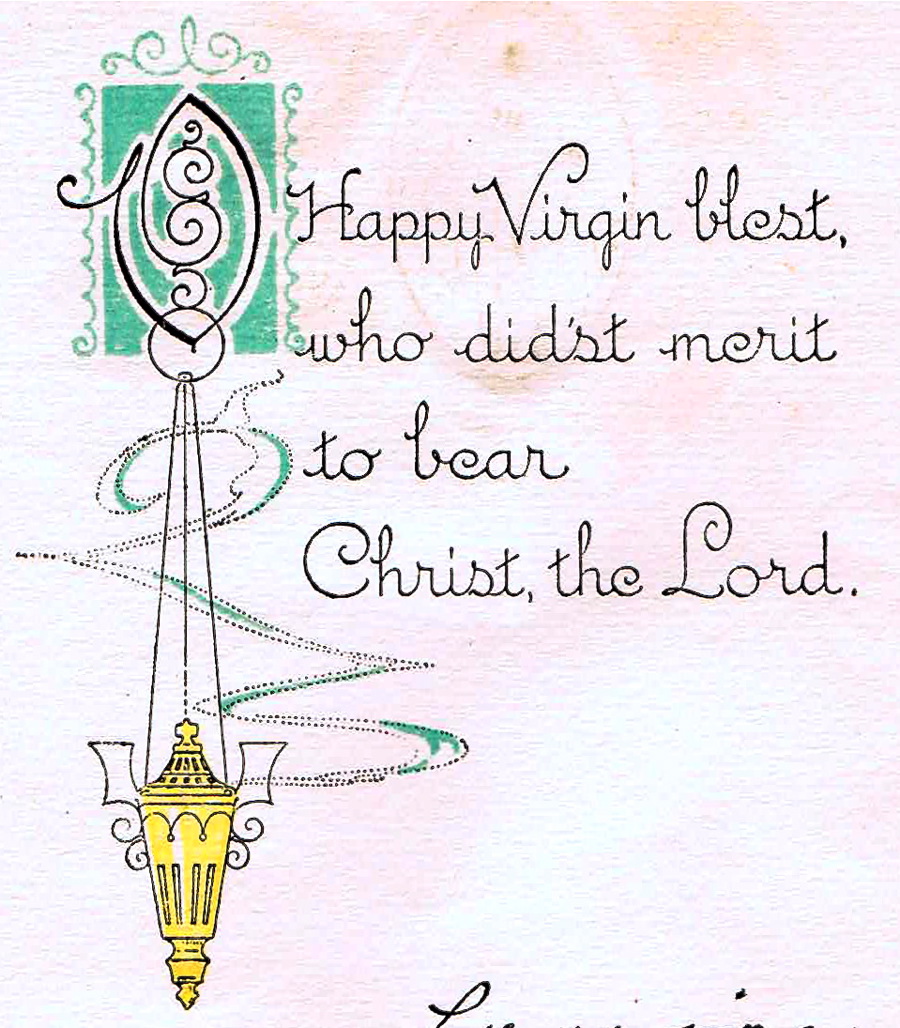 O Happy Virgin blest,
who did'st merit
to bear
Christ, the Lord.